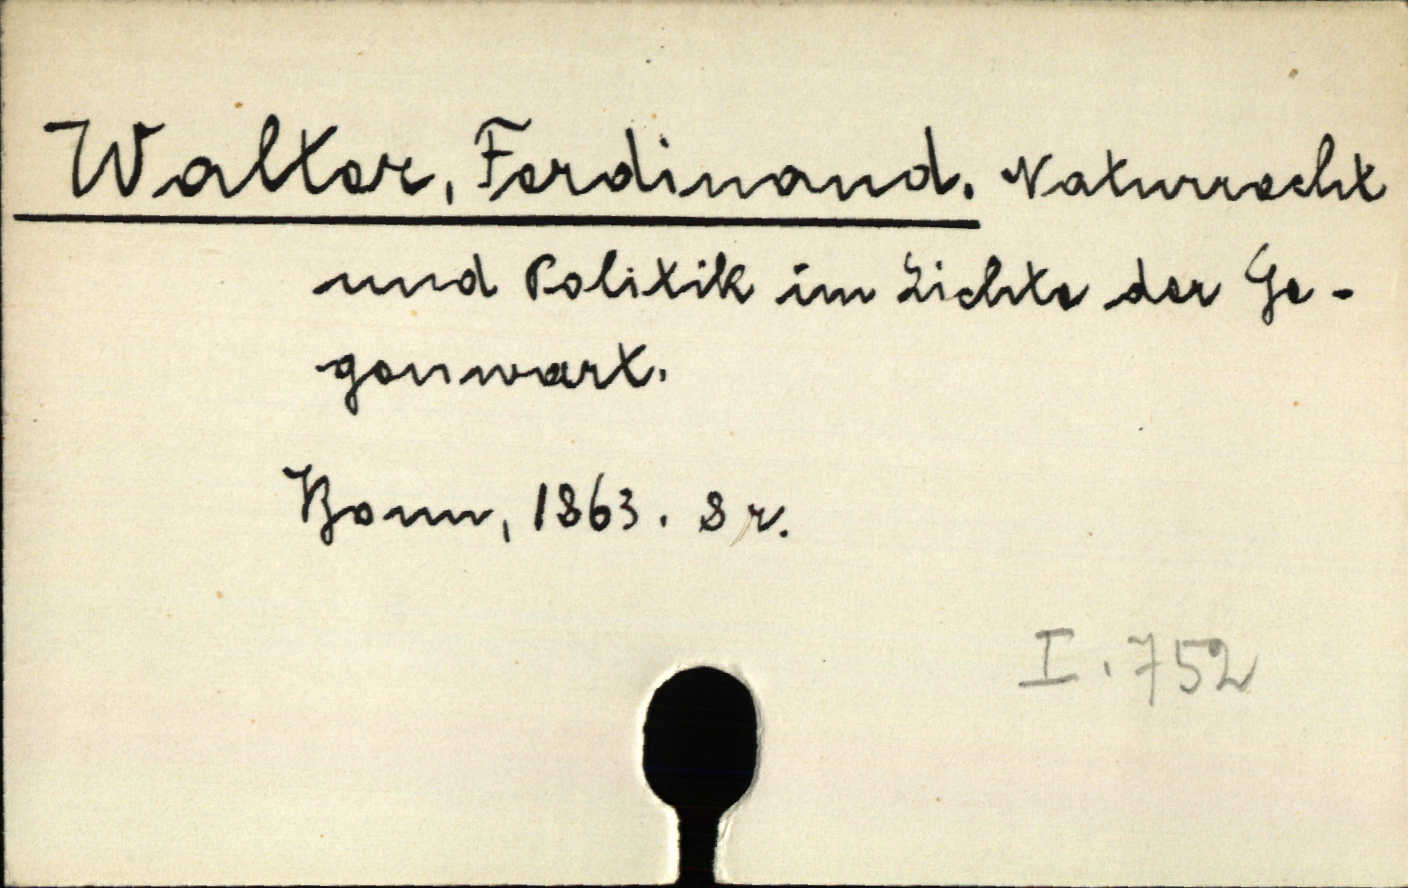 Walter, Ferdinand. Naturrecht
und Politik im Lichte der Ge-
genwart.
Bonn, 1863. 8 r.
I. 752